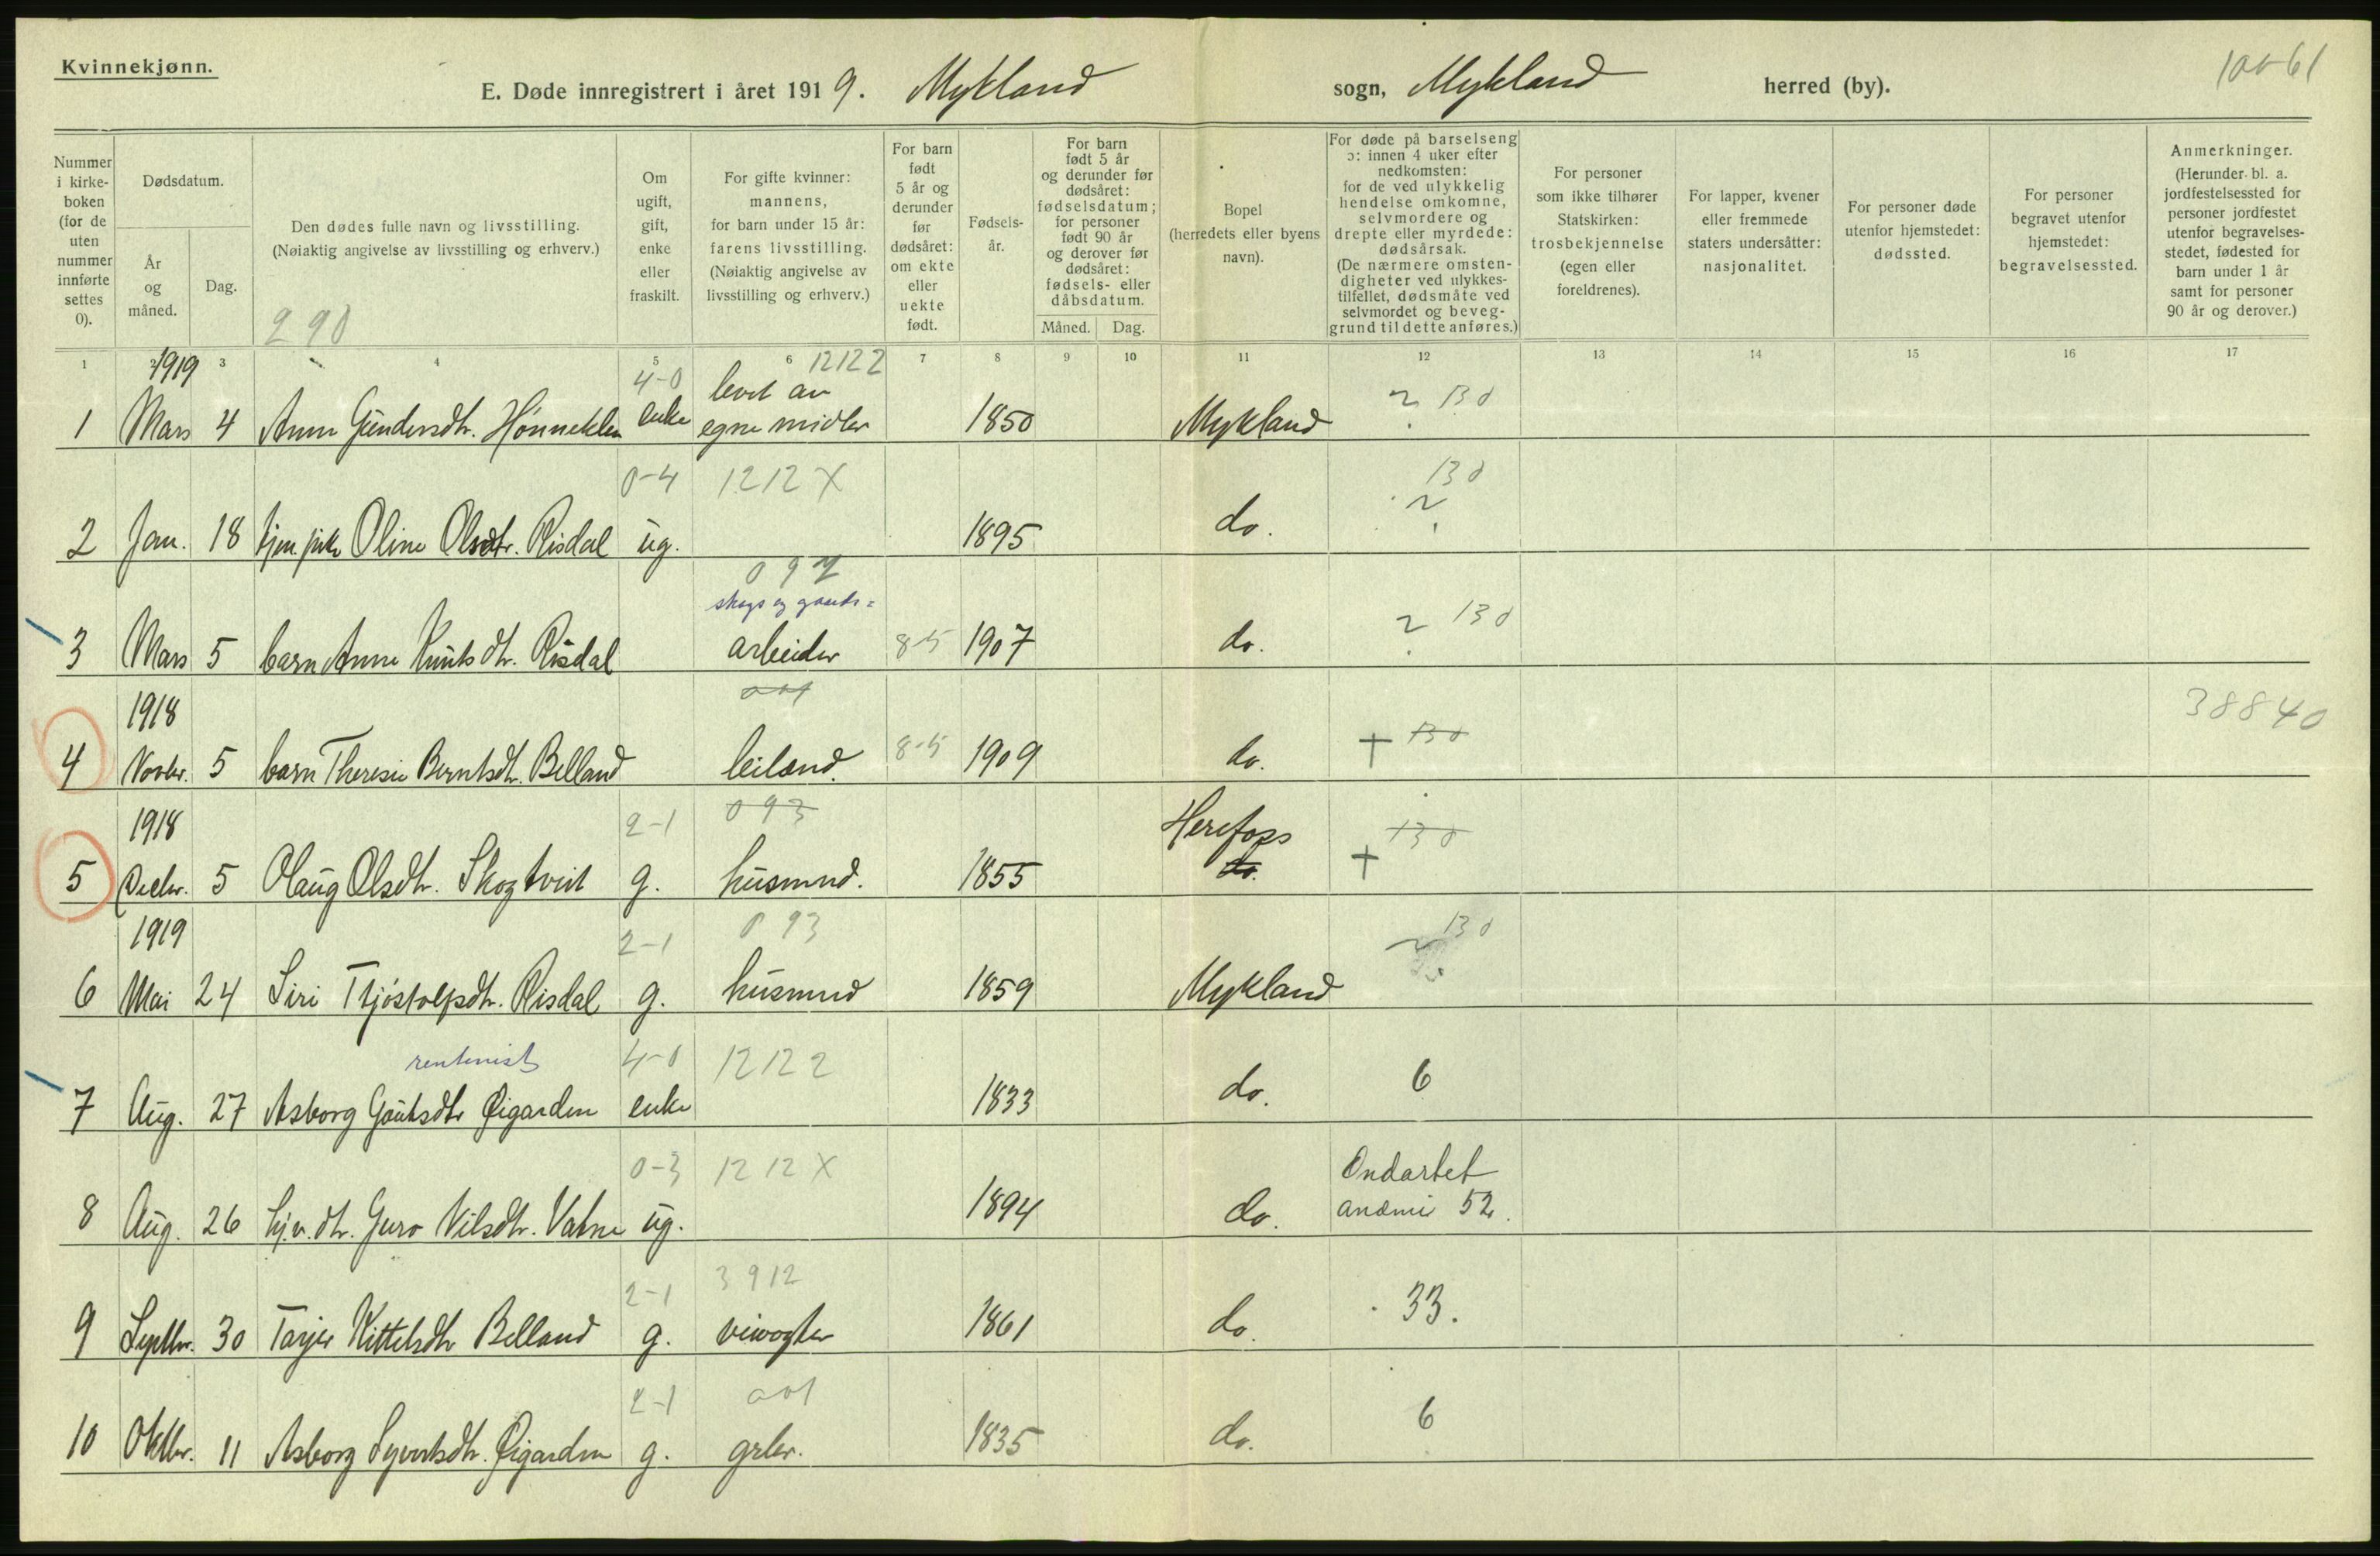 Kvinnekjønn.
E. Døde innregistrert i året 1919. Mykland sogn, Mykland herred (by).
Nummer i kirkeboken (for de uten nummer innførte settes 0).
Dødsdatum.
År og måned.
Dag.
Den dødes fulle navn og livsstilling.
(Nøiaktig angivelse av livsstilling og erhverv.)
290
Om ugift, gift, enke eller fraskilt.
For gifte kvinner: mannens, for barn under 15 år: farens livsstilling. (Nøiaktig angivelse av livsstilling og erhverv.)
For barn født 5 år og derunder før dødsåret: om ekte eller uekte født.
Fødselsår.
For barn født 5 år og derunder før dødsåret: fødselsdatum; for personer født 90 år og derover før dødsåret: fødsels- eller dåbsdatum.
Måned. Dag.
Bopel (herredets eller byens navn).
For døde på barselseng ɔ: innen 4 uker efter nedkomsten: for de ved ulykkelig hendelse omkomne, selvmordere og drepte eller myrdede: dødsårsak. (De nærmere omstendigheter ved ulykkestilfellet, dødsmåte ved selvmordet og beveggrund til dette anføres.)
For personer som ikke tilhører Statskirken: trosbekjennelse (egen eller foreldrenes).
For lapper, kvener eller fremmede staters undersåtter: nasjonalitet.
For personer døde utenfor hjemstedet: dødssted.
For personer begravet utenfor hjemstedet: begravelsessted.
Anmerkninger. (Herunder bl. a. jordfestelsessted for personer jordfestet utenfor begravelsesstedet, fødested for barn under 1 år samt for personer 90 år og derover.)
1 2 3 4 5 6 7 8 9 10 11 12 13 14 15 16 17
1919 4-0 12122
1 Mars 4 Anne Gundersdtr. Hønneklen enke levet av egne midler 1850 Mykland 130
0-4 1212X 130
2 Jan. 18 tjen.pike Oline Olsdtr. Risdal ug. 1895 do.
097
skogs og gaards-
3 Mars 5 barn Anne Knutsdtr. Risdal arbeider 8-5 1907 do. 130
1918 001 38840
4 Novbr. 5 barn Theresie Berntsdtr. Belland leilænd. 8-5 1909 do. + 130
1918 2-1 093 Herefoss 130
5 Decbr. 5 Olaug Olsdtr. Skogtveit g. husmnd. 1855 do. +
1919 2-1 093 130
6 Mai 24 Siri Tjøstolfsdtr. Risdal g. husmnd 1859 Mykland
rentenist 4-0 12122
7 Aug. 27 Asborg Gautsdtr Øigarden enke 1833 do. 6
0-3 1212X Ondartet
8 Aug. 26 hj.v. dtr. Guro Nilsdtr. Vatne ug. 1894 do. anæmi 52.
2-1 3912
9 Septbr. 30 Tarjer Kittelsdtr Belland g. veivogter 1861 do. 33.
2-1 001
10 Oktbr. 11 Asborg Syvertsdtr. Øigarden g. grbr. 1835 do. 6